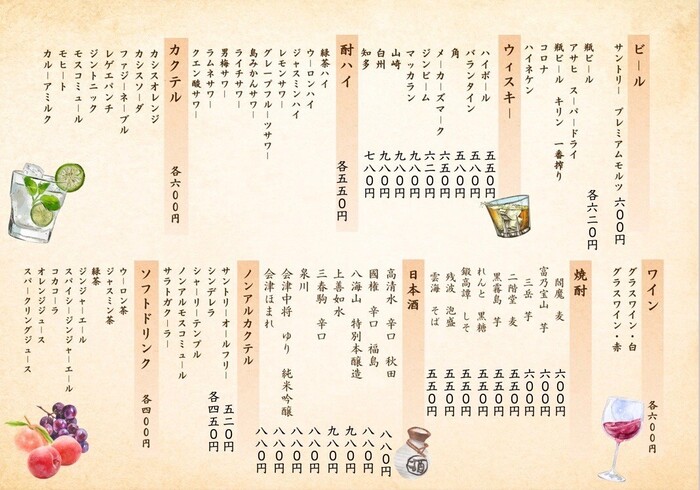 ビール
サントリー プレミアムモルツ 六〇〇円
瓶ビール 各六二〇円
アサヒ スーパードライ
瓶ビール キリン 一番搾り
コロナ
ハイネケン
ウィスキー
ハイボール 五五〇円
バランタイン 五八〇円
角 五八〇円
メーカーズマーク 六五〇円
ジンビーム 六二〇円
マッカラン 九八〇円
山崎 九八〇円
白州 九八〇円
知多 七八〇円
酎ハイ 各五五〇円
緑茶ハイ
ウーロンハイ
ジャスミンハイ
レモンサワー
グレープフルーツサワー
島みかんサワー
ライチサワー
男梅サワー
ラムネサワー
クエン酸サワー
カクテル 各六〇〇円
カシスオレンジ
カシスソーダ
ファジーネーブル
レゲエパンチ
ジントニック
モスコミュール
モヒート
カルーアミルク
ワイン 各六〇〇円
グラスワイン・白
グラスワイン・赤
焼酎
閻魔 麦 六〇〇円
富乃宝山 芋 六〇〇円
三岳 芋 六〇〇円
二階堂 麦 五五〇円
黒霧島 芋 五五〇円
れんと 黒糖 五五〇円
鍛高譚 しそ 五五〇円
残波 泡盛 五五〇円
雲海 そば 五五〇円
日本酒
高清水 辛口 秋田 八八〇円
國権 辛口 福島 八八〇円
八海山 特別本醸造 九八〇円
上善如水 九八〇円
三春駒 辛口 八八〇円
泉川 八八〇円
会津中将 ゆり 純米吟醸 八八〇円
会津ほまれ 八八〇円
酒
ノンアルカクテル
サントリーオールフリー 五二〇円
シンデレラ 各四五〇円
シャーリーテンプル
ノンアルモスコミュール
サラトガクーラー
ソフトドリンク 各四〇〇円
ウーロン茶
ジャスミン茶
緑茶
ジンジャーエール
スパイシージンジャーエール
コカコーラ
オレンジジュース
スパークリングジュース